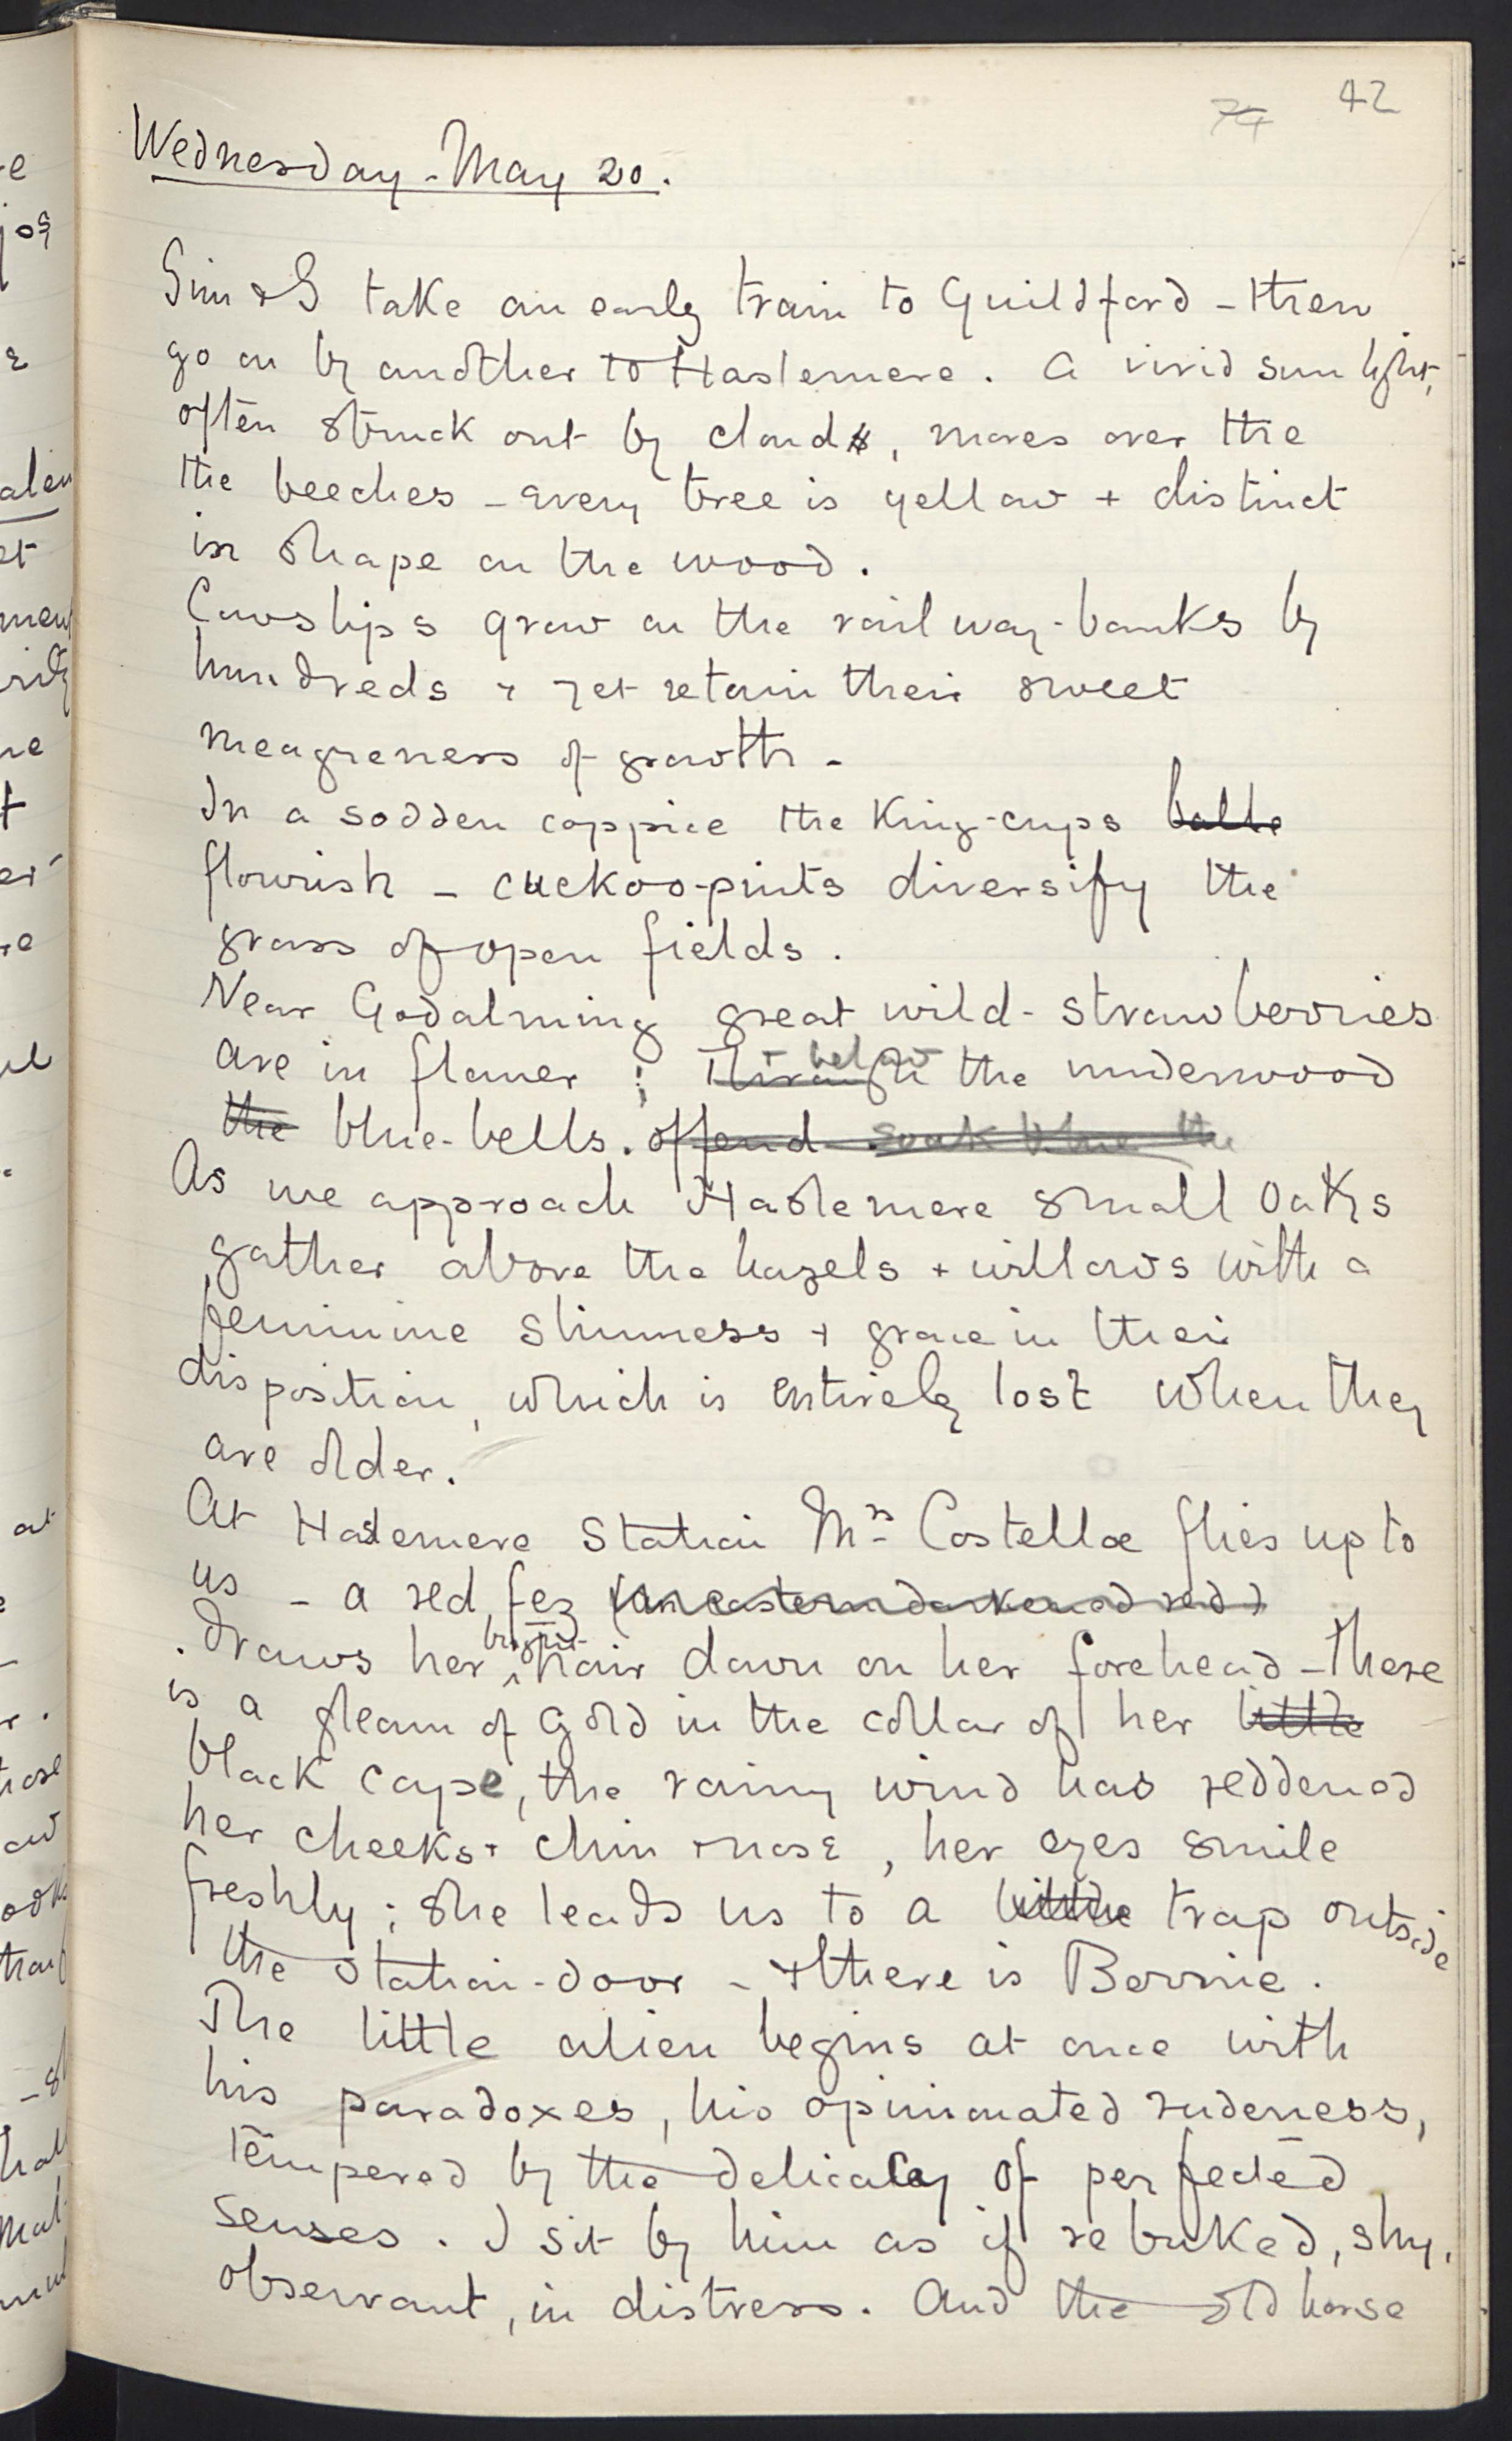 74 42
Wednesday - May 20.
Sim & I take an early train to Guildford - then
go on by another to Haslemere. A vivid sun light,
often struck out by clouds, moves over the
the beeches - every tree is yellow + distinct
in shape on the wood.
Cowslips grow on the railway-banks by
hundreds & yet retain their sweet
meagreness of growth -
In a sodden coppice the King-cups
flourish - cuckoo-pints diversify the
grass of open fields.
Near Godalming great wild-strawberries
are in flower ; Through below the underwood
the blue-bells. offend soak blue the
As we approach Haslemere small oaks
gather above the hazels + willows with a
feminine slimness + grace in their
disposition, which is entirely lost when they
are older.
At Haslemere Station Mrs Costelloe flies up to
us - a red fez (an eastern darkened red)
draws her bright hair down on her forehead - there
is a gleam of gold in the collar of her little
black cape, the rainy wind has reddened
her cheeks + chin + nose, her eyes smile
freshly ; she leads us to a little trap outside
the station-door - & there is Bernie.
The little alien begins at once with
his paradoxes, his opinionated rudeness,
tempered by the delicacy of perfected
senses. I sit by him as if rebuked, shy,
observant, in distress. And the old horse